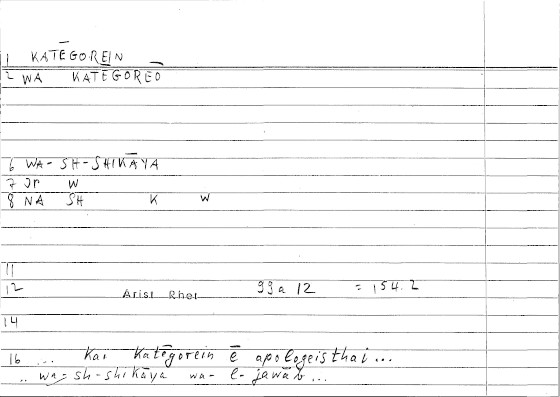 1 KATĒGOREIN
2 WA KATĒGOREŌ
6 WA-SH-SHIKĀYA
7 Jr W
8 NA SH K W
11
12 Arist Rhet 99a 12 = 154.2
14
16 ... kai katēgorein ē apologeisthai...
.. wa-sh-shikāya wa-l-jawāb...